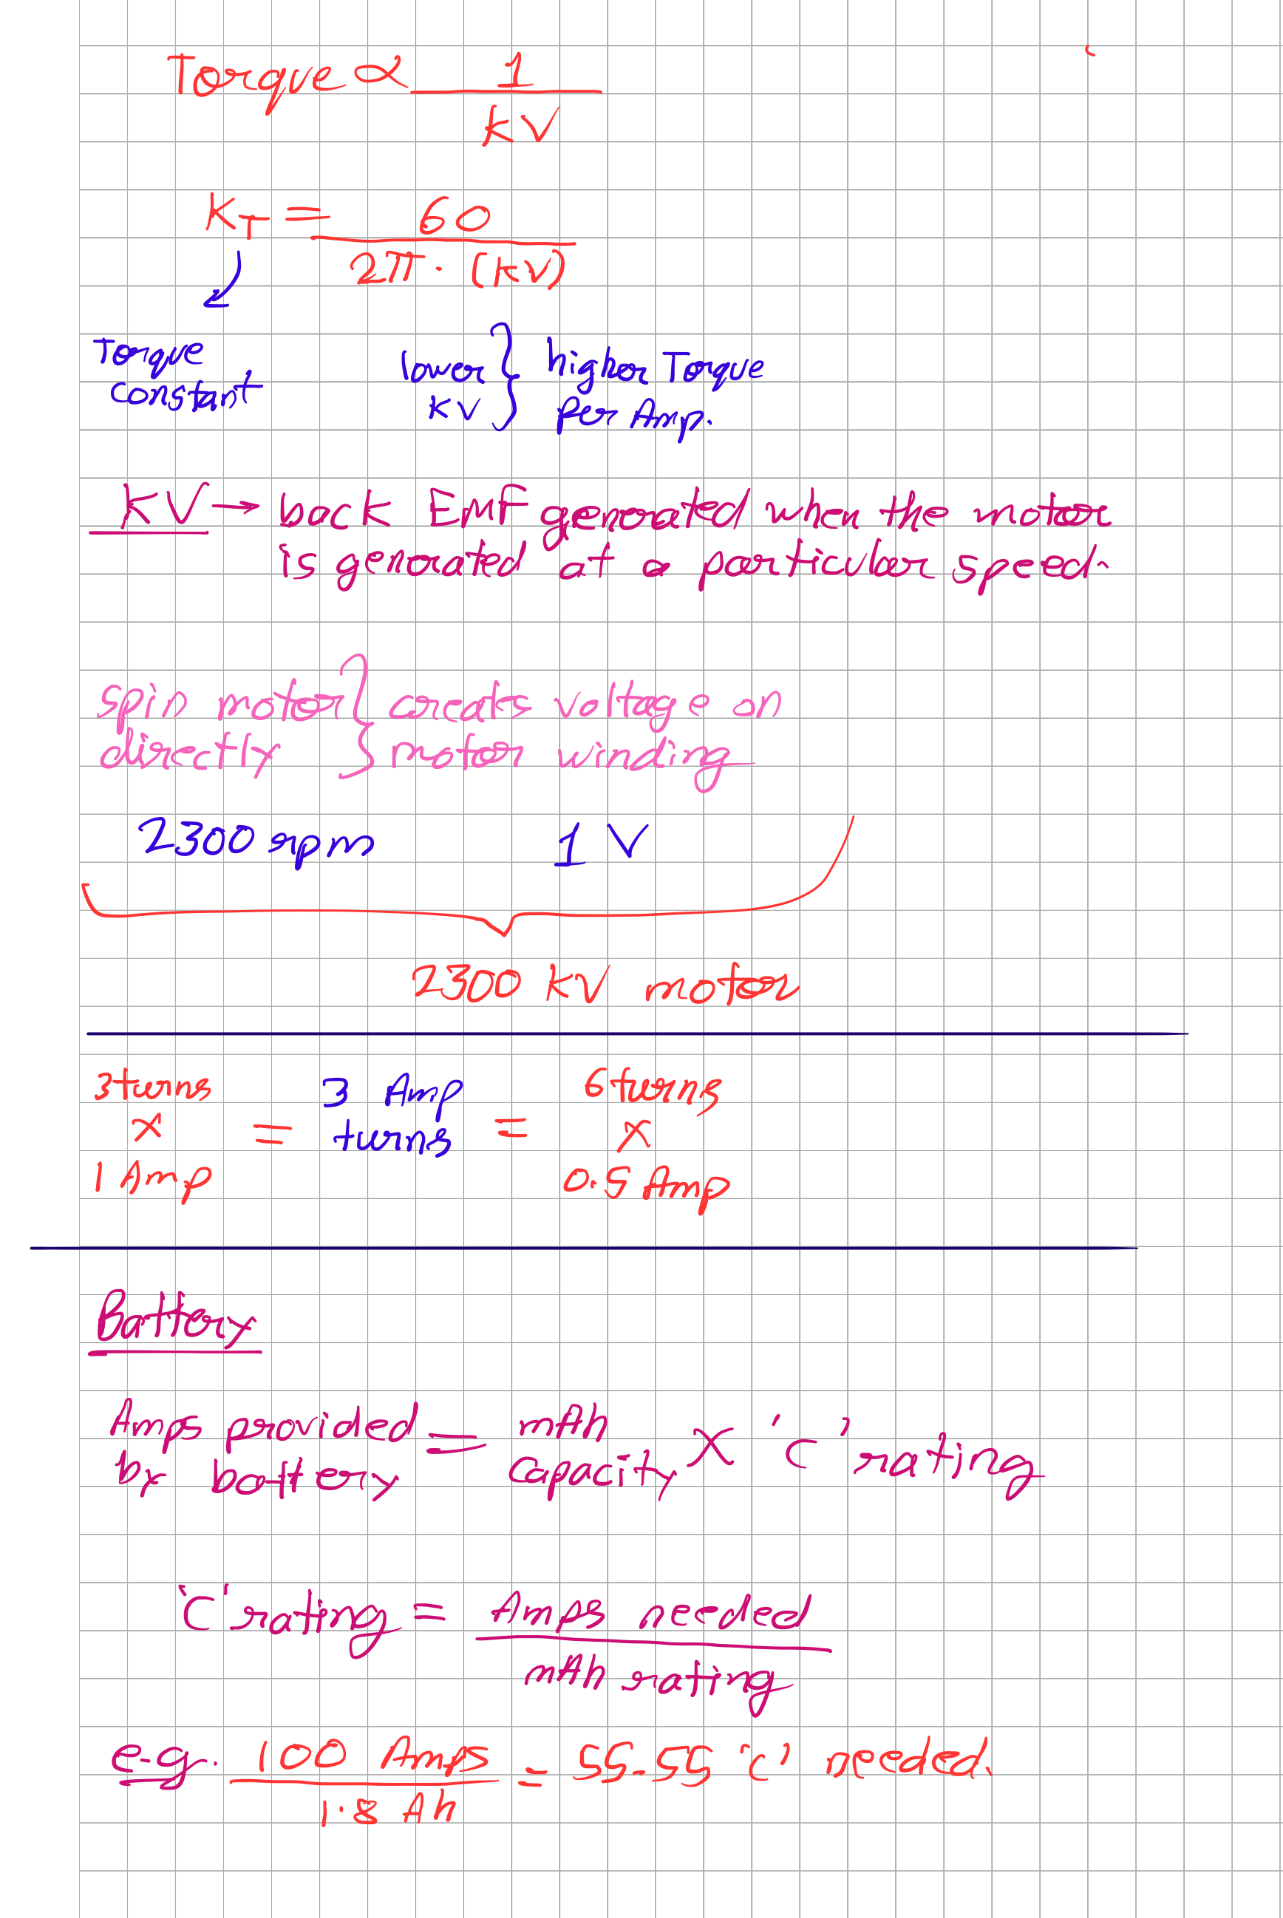 Torque ∝ 1
KV
K_T = 60
2π · (KV)
Torque
constant
lower } higher Torque
KV } Per Amp.
KV → back EMF generated when the motor
is generated at a particular speed.
spin motor } creats voltage on
directly } motor winding
2300 rpm 1 V
2300 KV motor
3 turns = 3 Amp = 6 turns
x turns x
1 Amp 0.5 Amp
Battery
Amps provided = mAh X 'C' rating
by battery capacity
'C' rating = Amps needed
mAh rating
e.g. 100 Amps = 55.55 'C' needed.
1.8 Ah